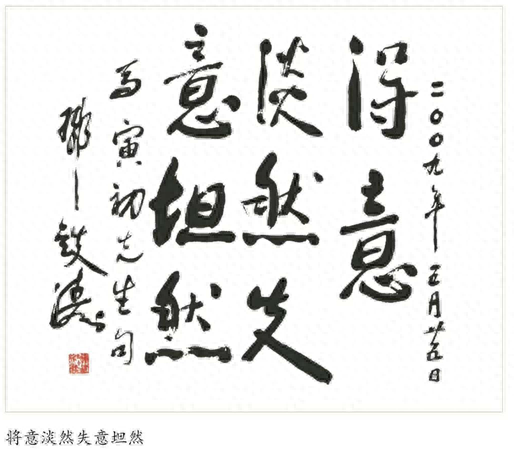 二〇〇九年五月廿五日
得意
淡然失
意坦然
马寅初先生句
将意淡然失意坦然